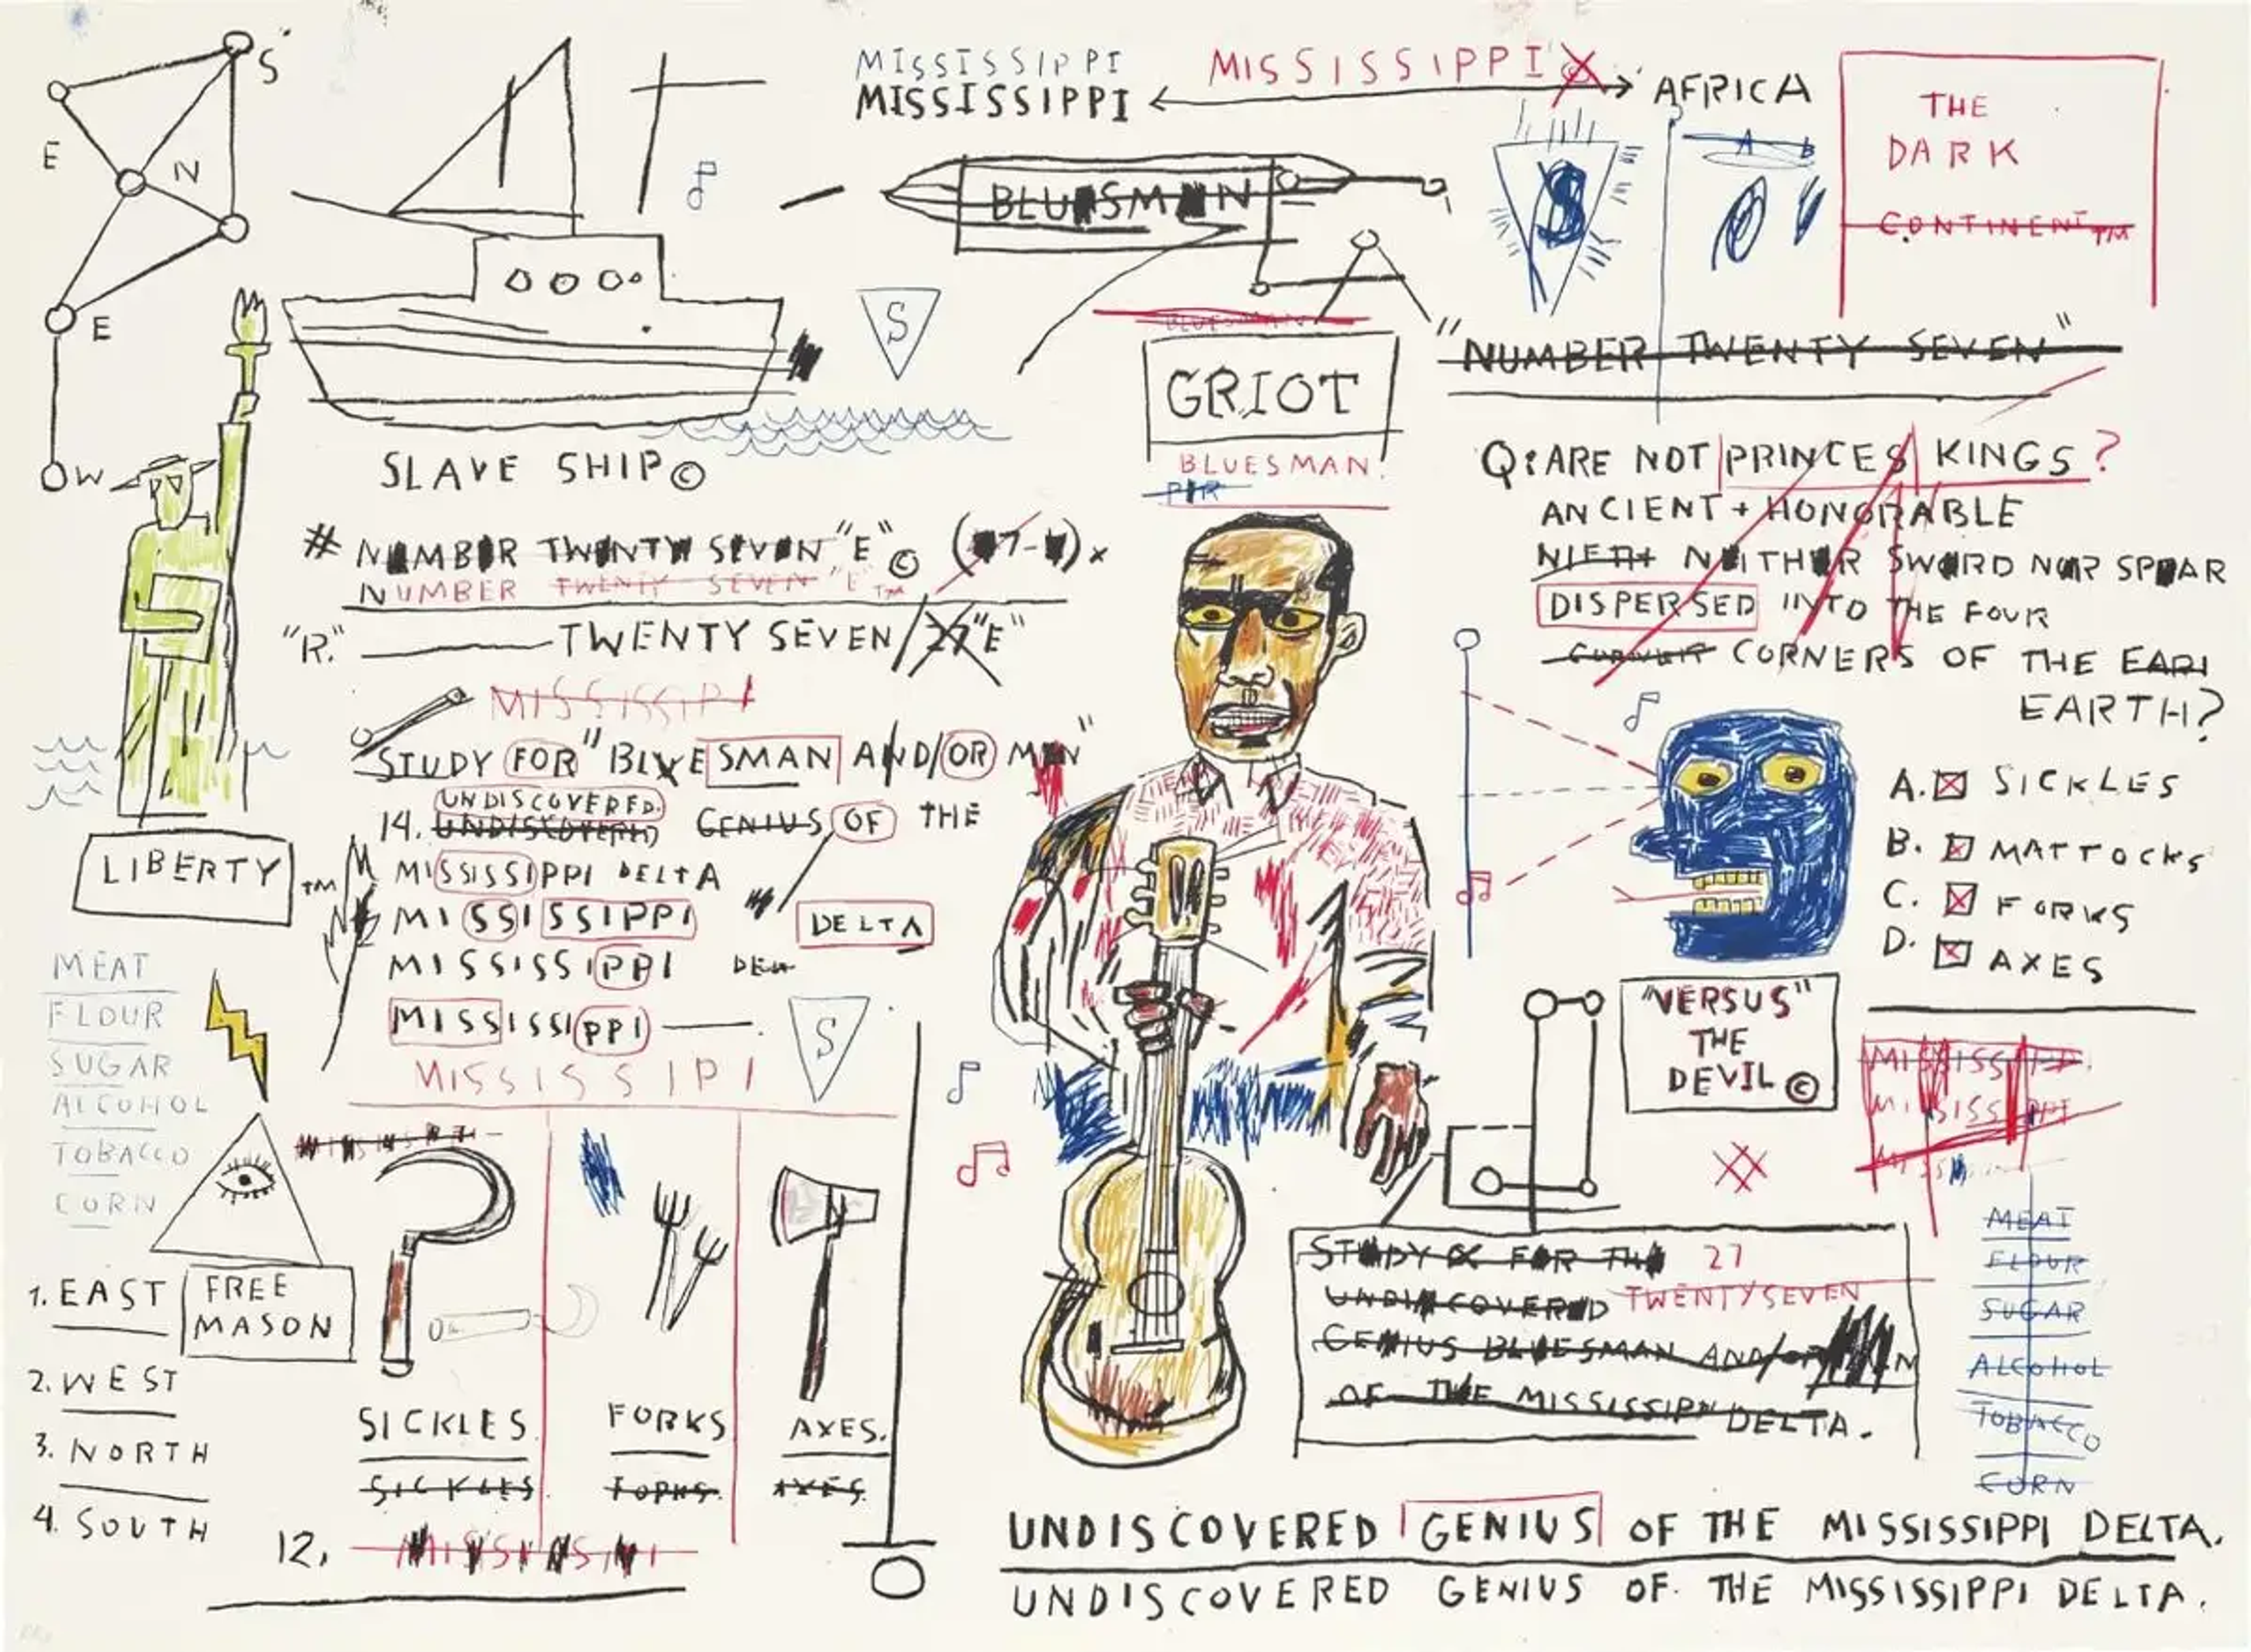 S
E
N
E
W
MISSISSIPPI
MISSISSIPPI
MISSISSIPPI
AFRICA
THE
DARK
CONTINENT™
BLUESMAN
A B
$
S
BLUESMAN
GRIOT
BLUESMAN.
"NUMBER TWENTY SEVEN"
SLAVE SHIP©
Q: ARE NOT PRINCES KINGS?
ANCIENT + HONORABLE
NIETH NEITHER SWORD NOR SPEAR
DISPERSED INTO THE FOUR
CORNERS OF THE EARI
EARTH?
# NUMBER TWENTY SEVEN "E"©
NUMBER TWENTY SEVEN "E"™
"R." TWENTY SEVEN/27 "E"
MISSISSIPI
STUDY FOR "BLUESMAN AND/OR MEN"
UNDISCOVERED.
14. UNDISCOVERED GENIUS OF THE
MISSISSIPPI DELTA
MISSISSIPPI DELTA
MISSISSIPPI DELT
MISSISSIPPI
S
MISSISSIPI
LIBERTY™
MEAT
FLOUR
SUGAR
ALCOHOL
TOBACCO
CORN
FREE
MASON
1. EAST
2. WEST
3. NORTH
4. SOUTH
SICKLES
SICKLES
FORKS
FORKS
AXES.
AXES
12.
A. SICKLES
B. MATTOCKS
C. FORKS
D. AXES
"VERSUS"
THE
DEVIL©
MISSISSIPPI
MISSISSIPPI
STUDY FOR THE 27
UNDISCOVERED TWENTYSEVEN
GENIUS BLUESMAN AND/OR
OF THE MISSISSIPPI DELTA.
MEAT
FLOUR
SUGAR
ALCOHOL
TOBACCO
CORN
UNDISCOVERED GENIUS OF THE MISSISSIPPI DELTA.
UNDISCOVERED GENIUS OF THE MISSISSIPPI DELTA.